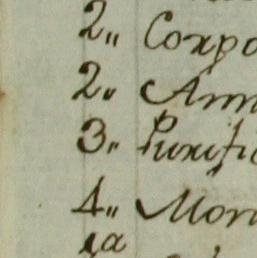 2,, Corpo
2,, Ann
3,, Purifi
4,, Mon
1a